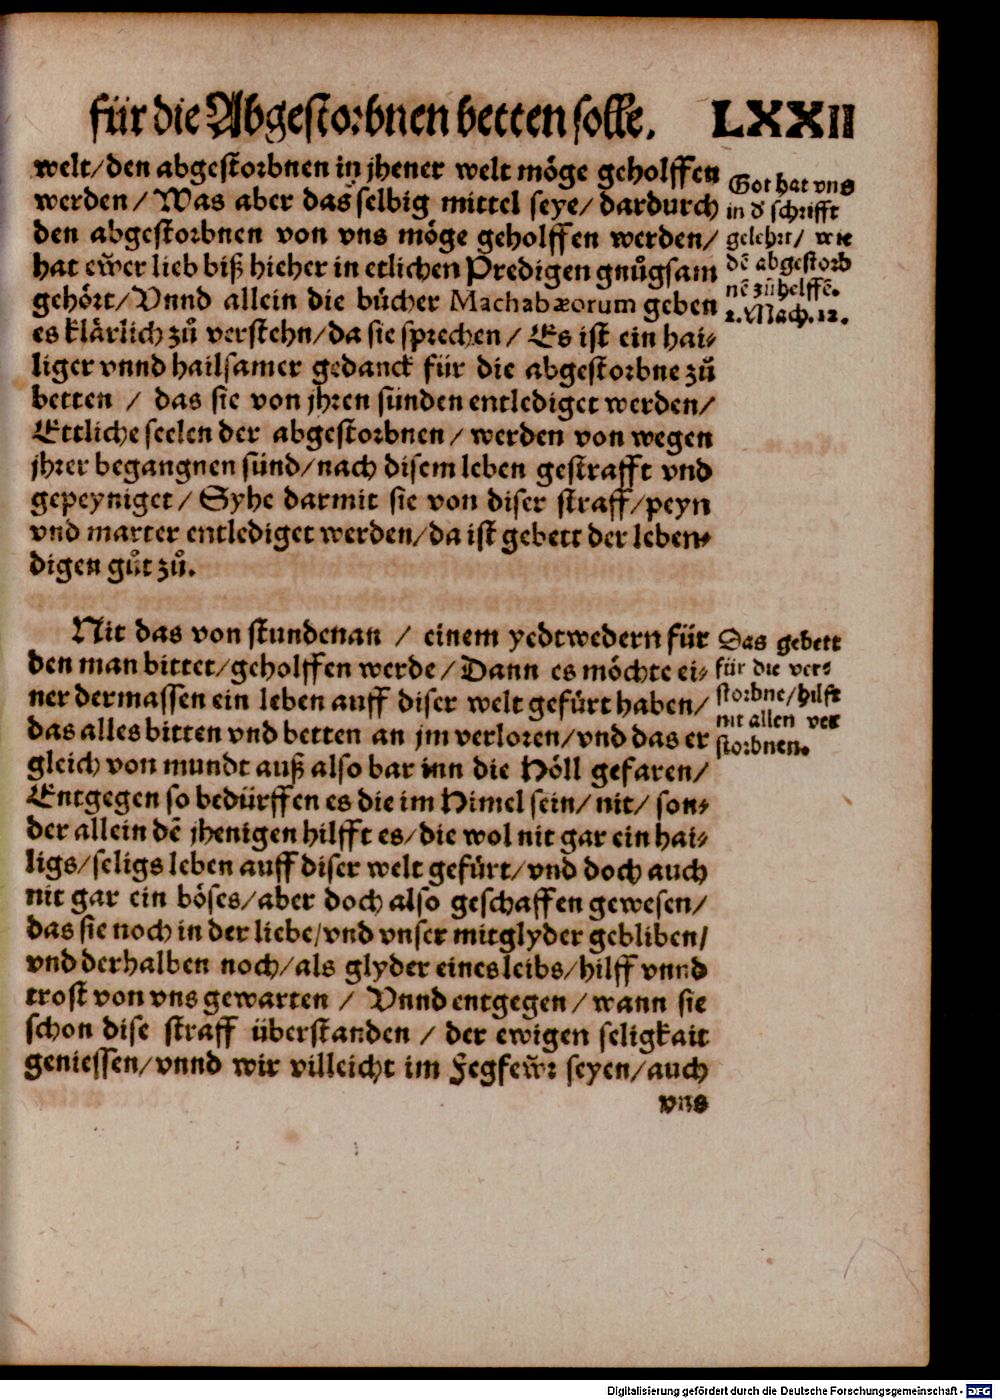 für die Abgestorbnen betten solle. LXXII
welt/den abgestorbnen in jhener welt möge geholffen
werden/ Was aber das selbig mittel seye/ dardurch
den abgestorbnen von vns möge geholffen werden/
hat ew̃er lieb biß hieher in etlichen Predigen gnůgsam
gehört/ Vnnd allein die bücher Machabæorum geben
es klärlich zů verstehn/da sie sprechen/ Es ist ein hai-
liger vnnd hailsamer gedanck für die abgestorbne zů
betten / das sie von jhren sünden entlediget werden/
Ettliche seelen der abgestorbnen/ werden von wegen
jhrer begangnen sünd/nach disem leben gestrafft vnd
gepeyniget/ Syhe darmit sie von diser straff/peyn
vnd marter entlediget werden/da ist gebett der leben-
digen gůt zů.
Got hat vns
in d̕ schrifft
gelehrt/ wie
dē abgestorb
nē zů helffē.
2. Mach. 12.
Nit das von stundenan / einem yedtwedern für
den man bittet/geholffen werde/ Dann es möchte ei-
ner dermassen ein leben auff diser welt gefürt haben/
das alles bitten vnd betten an jm verloren/vnd das er
gleich von mundt auß also bar inn die Höll gefaren/
Entgegen so bedürffen es die im Himel sein/ nit/ son-
der allein dē jhenigen hilfft es/die wol nit gar ein hai-
ligs/seligs leben auff diser welt gefürt/vnd doch auch
nit gar ein böses/aber doch also geschaffen gewesen/
das sie noch in der liebe/vnd vnser mitglyder gebliben/
vnd derhalben noch/als glyder eines leibs/hilff vnnd
trost von vns gewarten / Vnnd entgegen/ wann sie
schon dise straff überstanden / der ewigen seligkait
geniessen/vnnd wir villeicht im Fegfew̃r seyen/auch
vns
Das gebett
für die ver-
storbne/hilft
nit allen ver
storbnen.
Digitalisierung gefördert durch die Deutsche Forschungsgemeinschaft - DFG